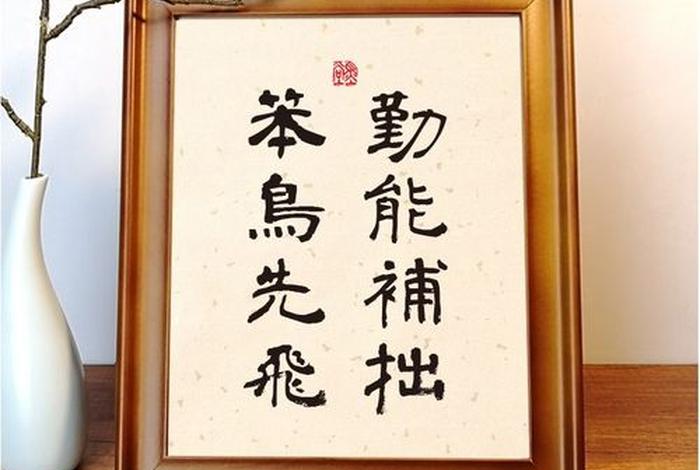 勤能補拙
笨鳥先飛